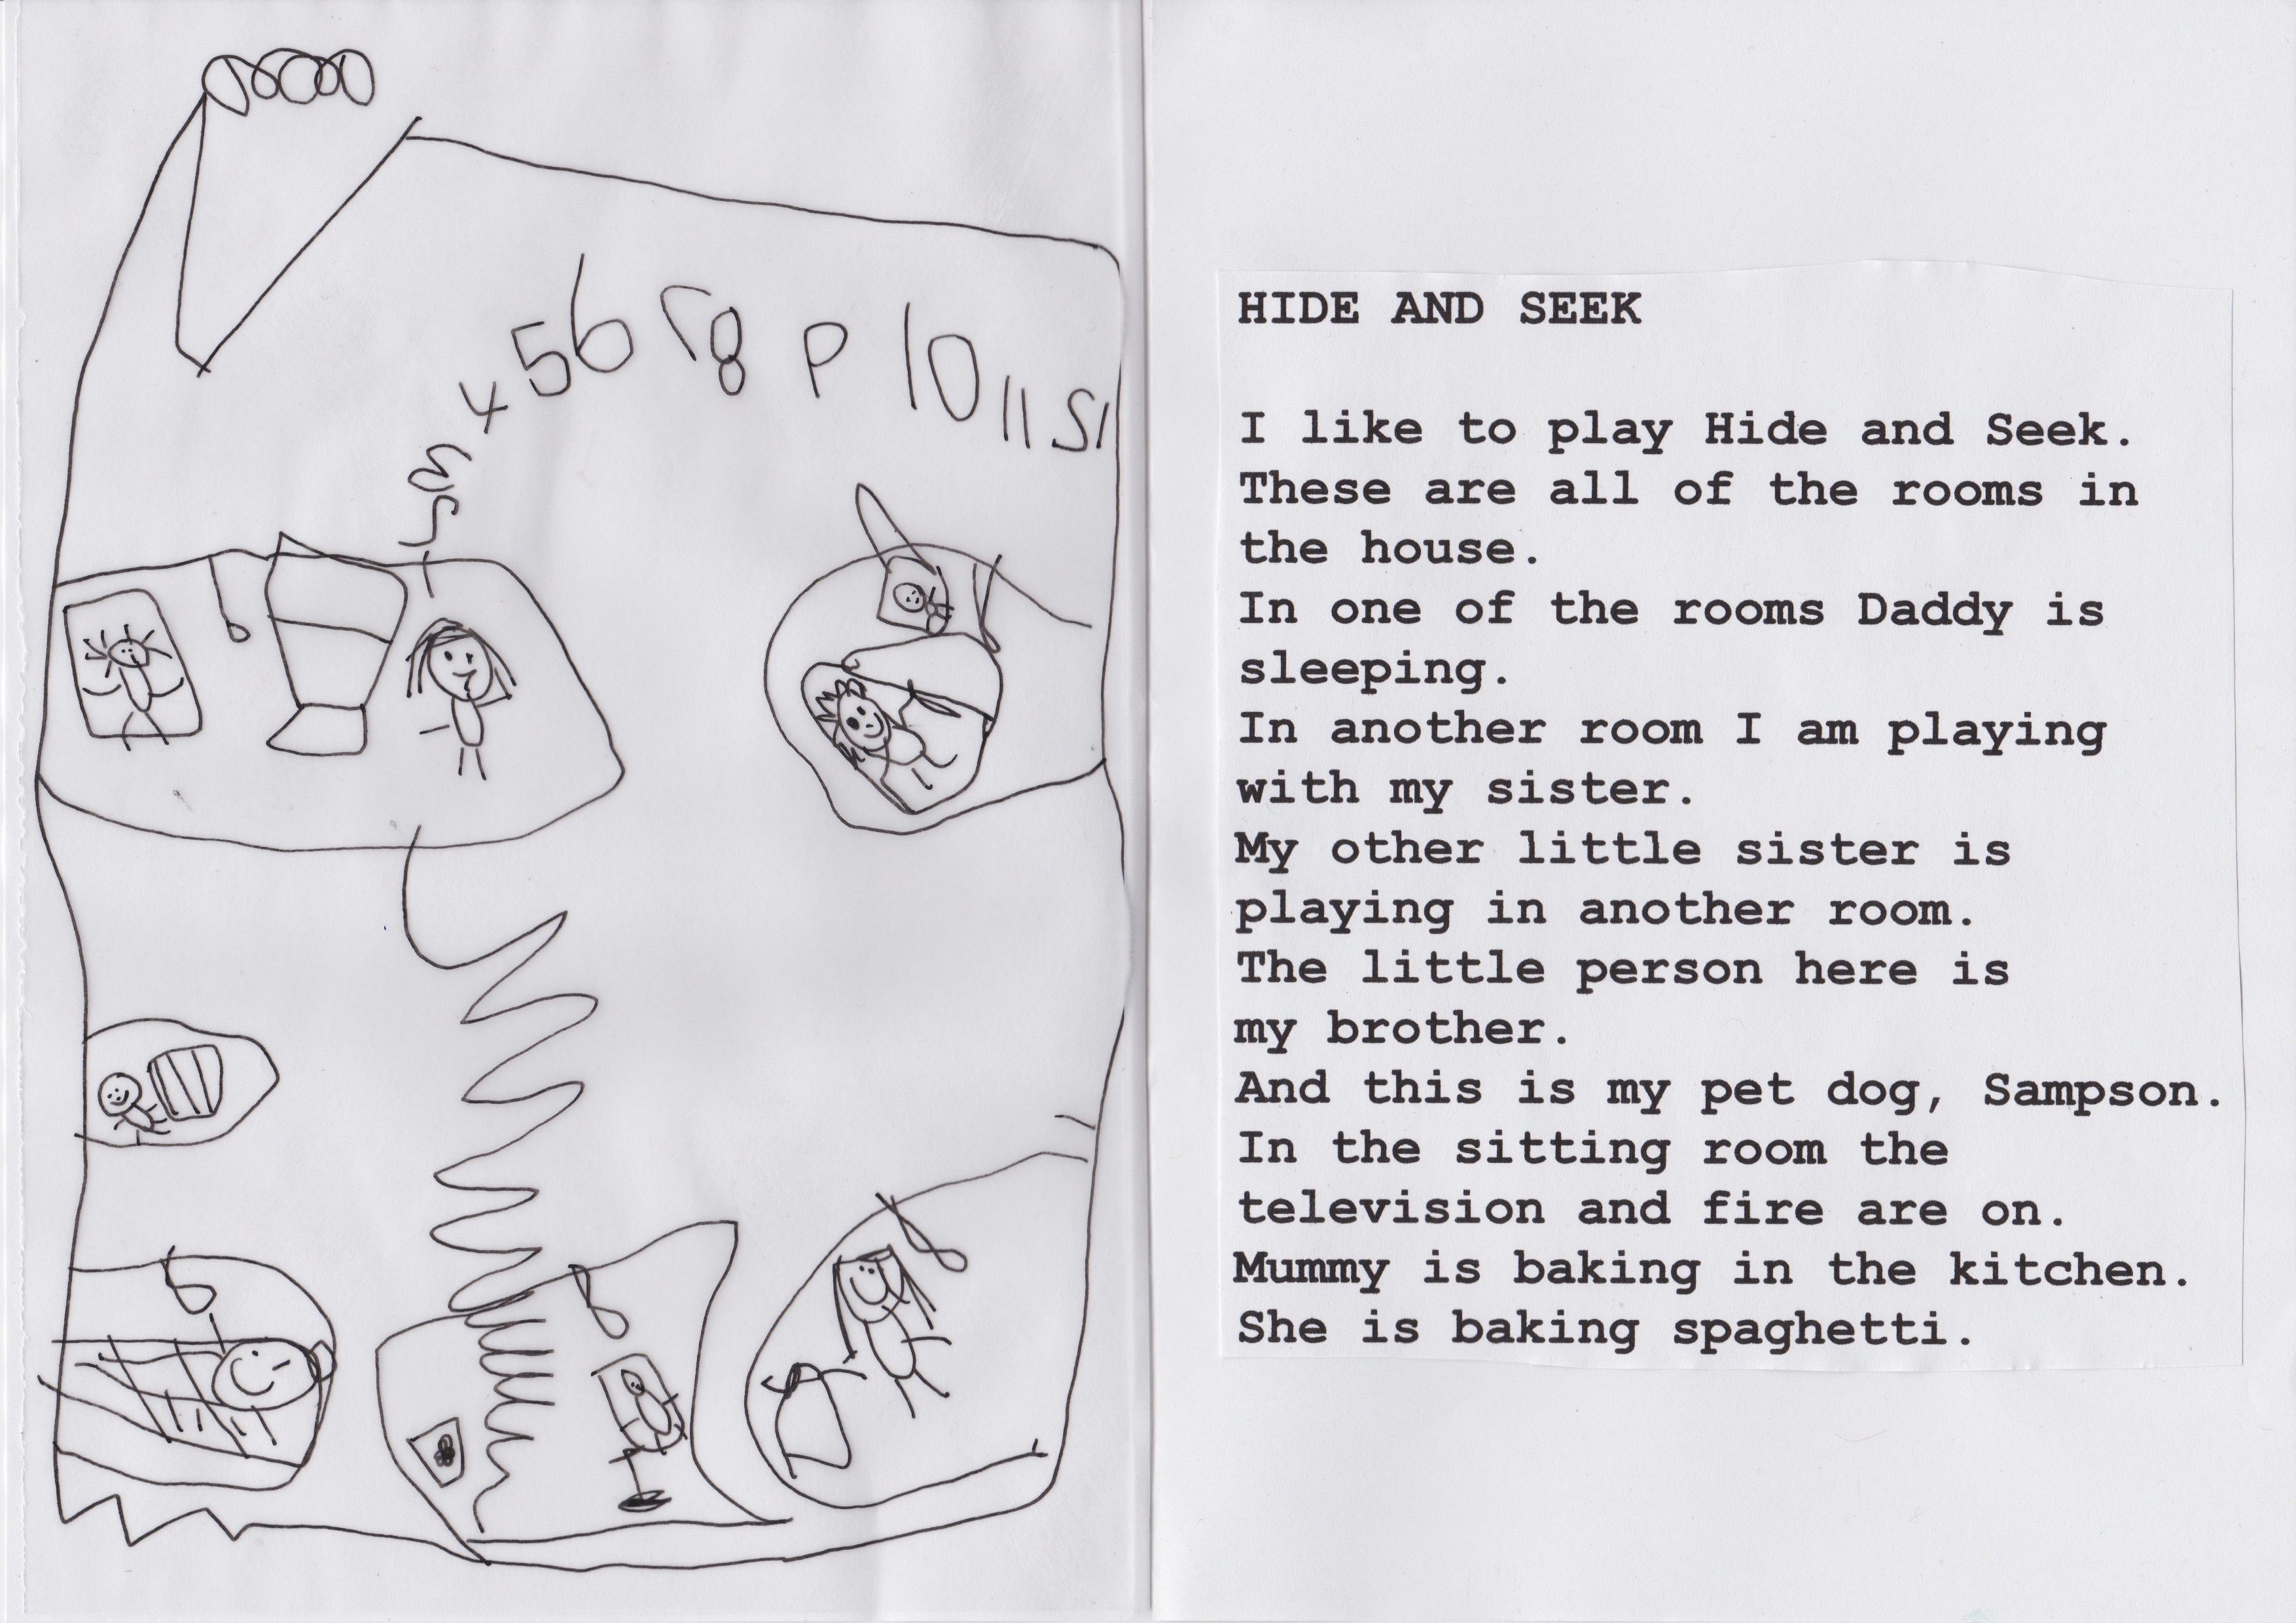 1 2 3 4 5 6 7 8 9 10 11 12
HIDE AND SEEK
I like to play Hide and Seek.
These are all of the rooms in
the house.
In one of the rooms Daddy is
sleeping.
In another room I am playing
with my sister.
My other little sister is
playing in another room.
The little person here is
my brother.
And this is my pet dog, Sampson.
In the sitting room the
television and fire are on.
Mummy is baking in the kitchen.
She is baking spaghetti.